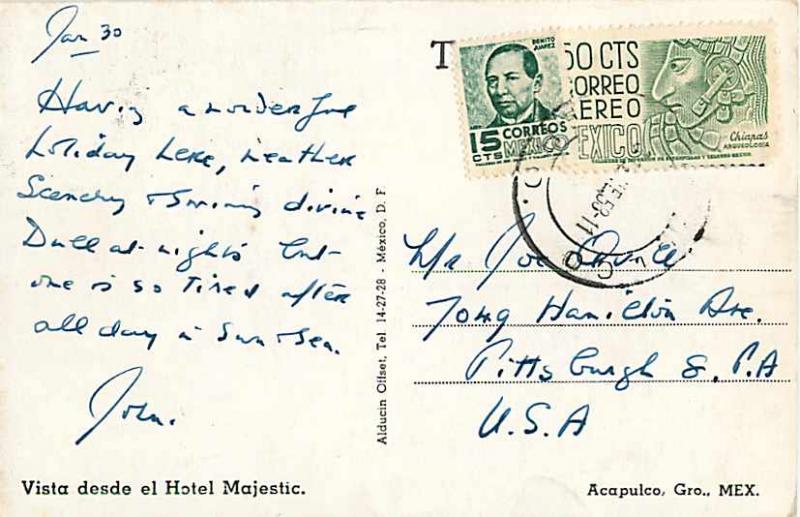 Jan 30
Having a wonderful
holiday here, weather
Scenery & Swimming divine
Dull at nights but
one is so tired after
all day in Sun & Sea.
John.
Vista desde el Hotel Majestic.
Alducin Offset, Tel. 14-27-28 - México, D. F.
T
BENITO
JUAREZ
15
CTS
CORREOS
MEXICO
50 CTS
CORREO
AEREO
MEXICO
Chiapas
ARQUEOLOGIA
Mr Joe
Hamilton Ave.
Pittsburgh 8, P.A
U.S.A
Acapulco, Gro., MEX.